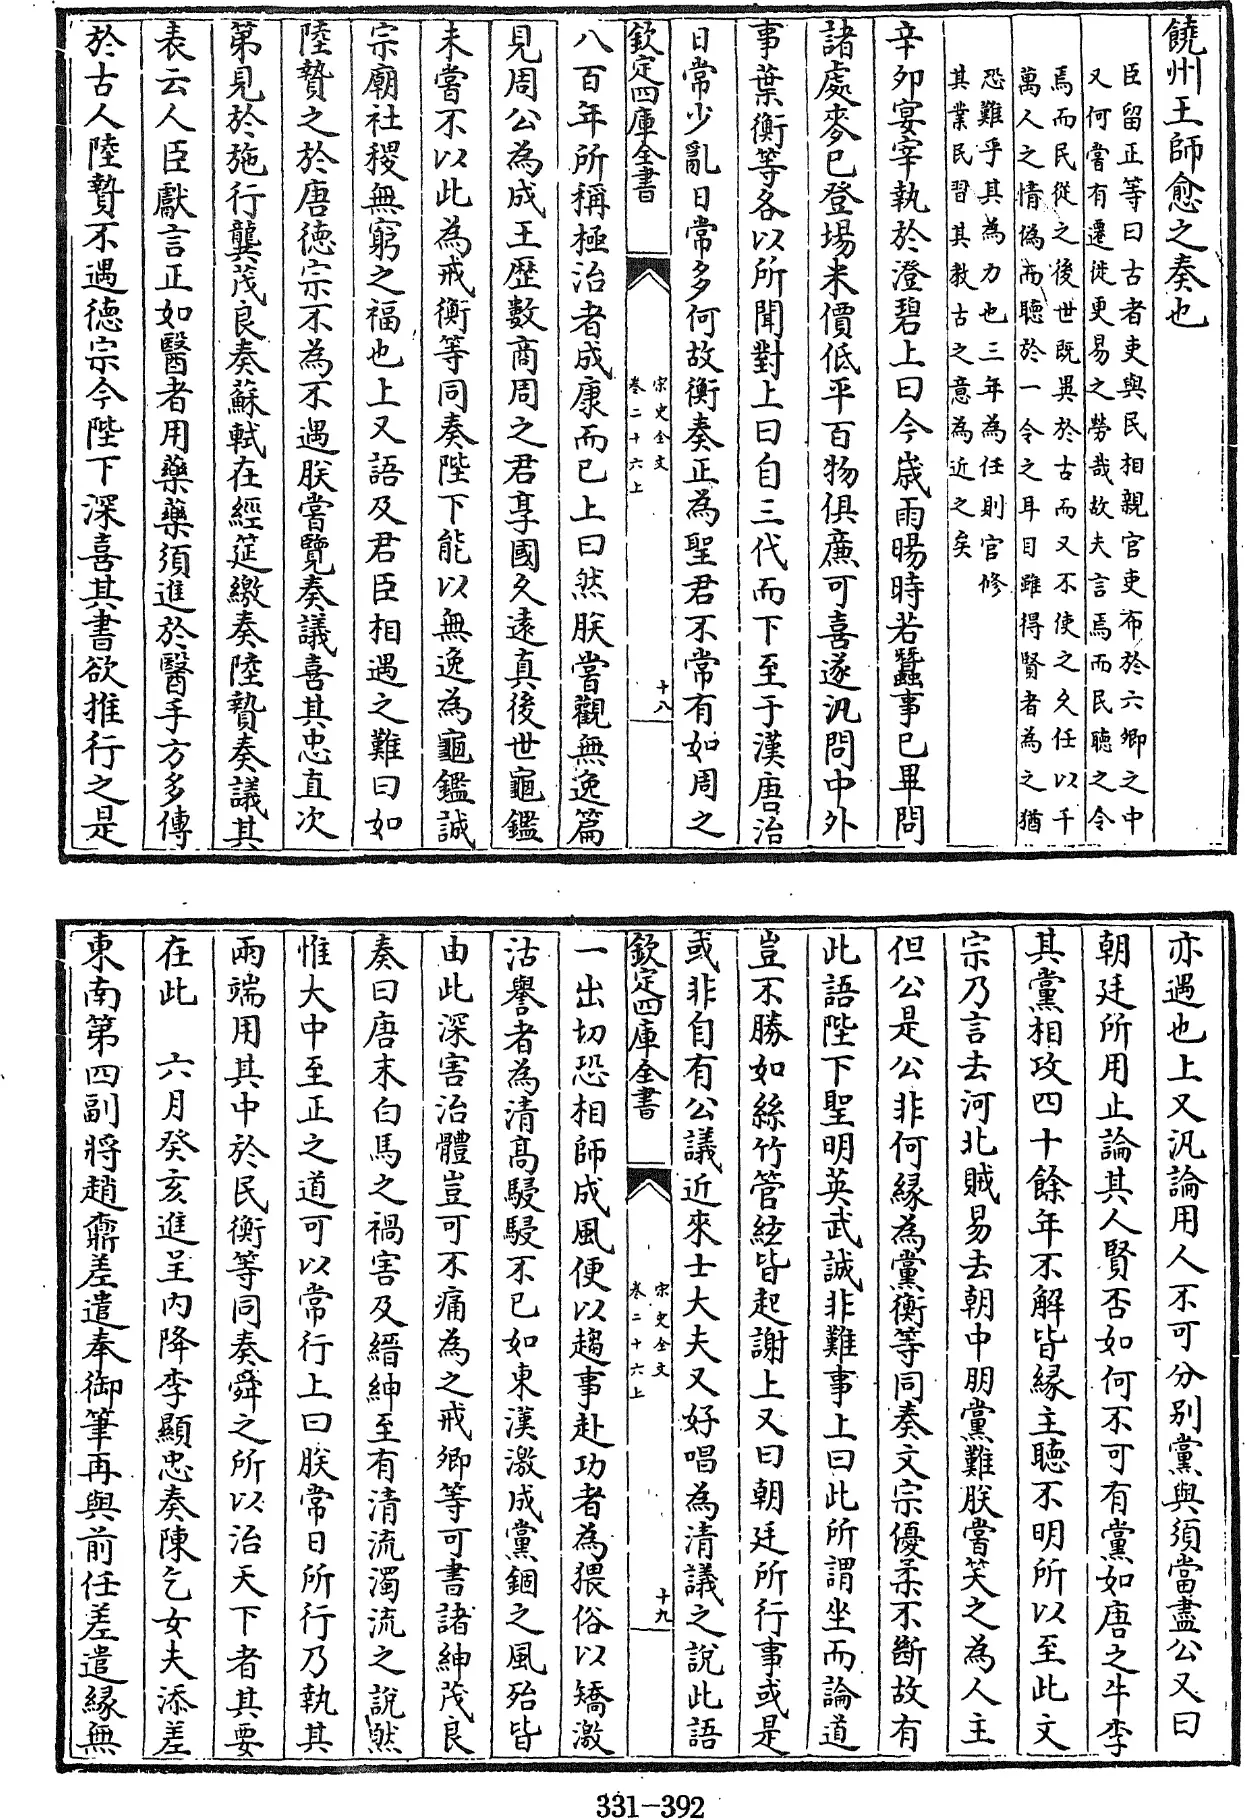 饒州王師愈之奏也
臣留正等曰古者吏與民相親官吏布於六鄉之中
又何嘗有遷徙更易之勞哉故夫言焉而民聽之令
焉而民從之後世既異於古而又不使之久任以千
萬人之情偽而聽於一令之耳目雖得賢者為之猶
恐難乎其為力也三年為任則官修
其業民習其教古之意為近之矣
辛卯宴宰執於澄碧上曰今歲雨暘時若蠶事已畢問
諸處麥已登場米價低平百物俱廉可喜遂汎問中外
事葉衡等各以所聞對上曰自三代而下至于漢唐治
日常少亂日常多何故衡奏正為聖君不常有如周之
欽定四庫全書
宋史全文
卷二十六上
十八
八百年所稱極治者成康而已上曰然朕嘗觀無逸篇
見周公為成王歷數商周之君享國久遠真後世龜鑑
未嘗不以此為戒衡等同奏陛下能以無逸為龜鑑誠
宗廟社稷無窮之福也上又語及君臣相遇之難曰如
陸贄之於唐德宗不為不遇朕嘗覽奏議喜其忠直次
第見於施行龔茂良奏蘇軾在經筵繳奏陸贄奏議其
表云人臣獻言正如醫者用藥藥須進於醫手方多傳
於古人陸贄不遇德宗今陛下深喜其書欲推行之是
亦遇也上又汎論用人不可分别黨與須當盡公又曰
朝廷所用止論其人賢否如何不可有黨如唐之牛李
其黨相攻四十餘年不解皆緣主聽不明所以至此文
宗乃言去河北賊易去朝中朋黨難朕嘗笑之為人主
但公是公非何緣為黨衡等同奏文宗優柔不斷故有
此語陛下聖明英武誠非難事上曰此所謂坐而論道
豈不勝如絲竹管絃皆起謝上又曰朝廷所行事或是
或非自有公議近來士大夫又好唱為清議之說此語
欽定四庫全書
宋史全文
卷二十六上
十九
一出切恐相師成風便以趨事赴功者為猥俗以矯激
沽譽者為清高駸駸不已如東漢激成黨錮之風殆皆
由此深害治體豈可不痛為之戒卿等可書諸紳茂良
奏曰唐末白馬之禍害及縉紳至有清流濁流之說然
惟大中至正之道可以常行上曰朕常日所行乃執其
兩端用其中於民衡等同奏舜之所以治天下者其要
在此　六月癸亥進呈内降李顯忠奏陳乞女夫添差
東南第四副將趙鼐差遣奉御筆再與前任差遣緣無
331-392